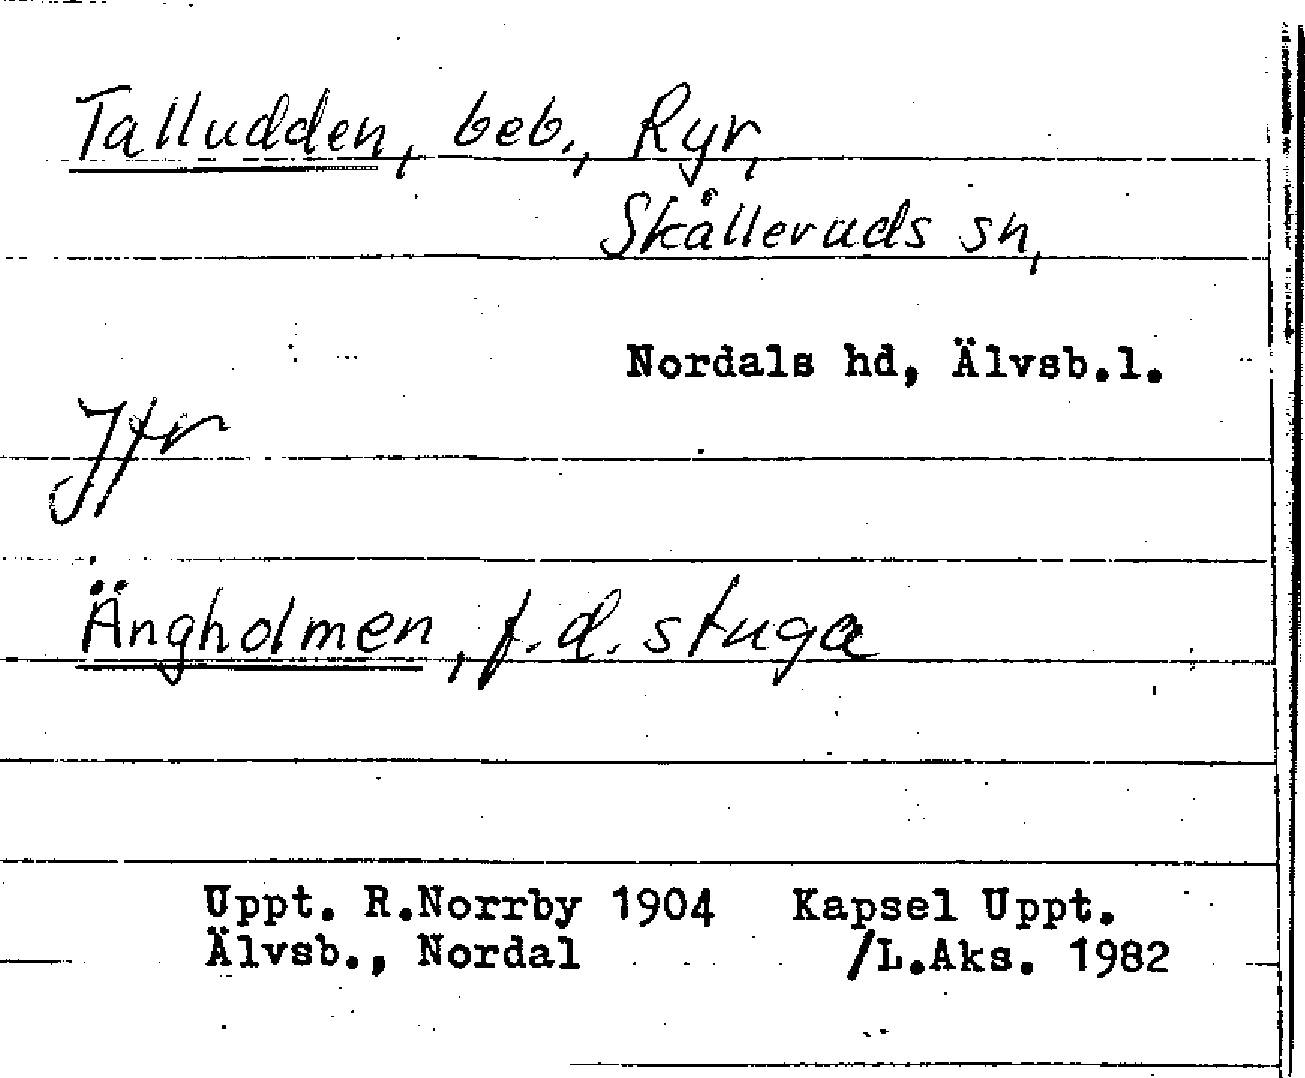 Talludden, beb., Ryr,
Skålleruds sn,
Nordals hd, Älvsb.l.
Jfr
Ängholmen, f.d. stuga
Uppt. R.Norrby 1904 Kapsel Uppt.
Älvsb., Nordal /L.Aks. 1982